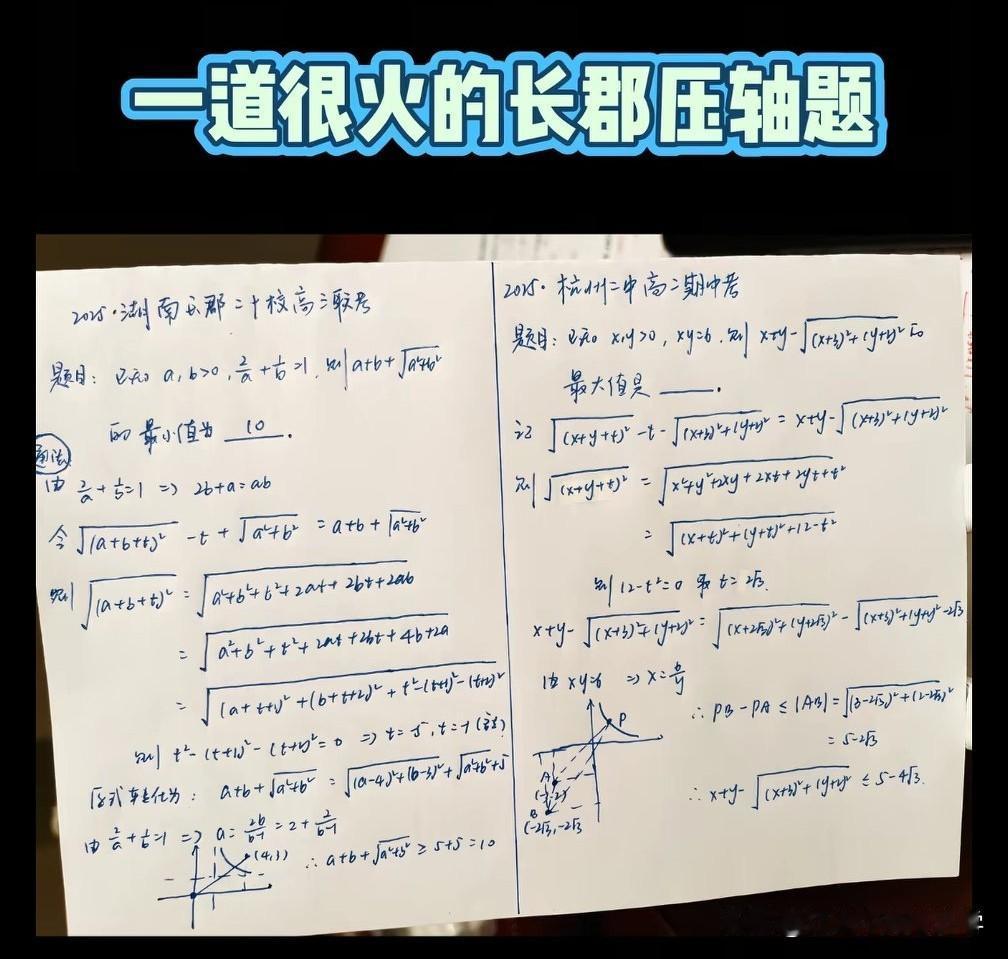 一道很火的长郡压轴题
2025·湖南长郡二十校高三联考
题目：已知 a,b>0, 2/a+1/b=1, 则 a+b+√(a²+b²)
的最小值为 10 .
由 2/a+1/b=1 => 2b+a=ab
令 √((a+b+t)²) -t+√(a²+b²) = a+b+√(a²+b²)
则 √((a+b+t)²) = √(a²+b²+t²+2at+2bt+2ab)
= √(a²+b²+t²+2at+2bt+4b+2a)
= √((a+t+1)²+(b+t+2)²+t²-(t+1)²-(t+2)²)
则 t²-(t+1)²-(t+2)²=0 => t=-5, t=-1(舍)
原式转化为: a+b+√(a²+b²) = √((a-4)²+(b-3)²)+√(a²+b²)+5
由 2/a+1/b=1 => a=2b/(b-1)=2+2/(b-1)
(4,3)
∴ a+b+√(a²+b²) ≥ 5+5=10
2025·杭州二中高二期中考
题目：已知 x,y>0, xy=6, 则 x+y-√((x+3)²+(y+2)²) 的
最大值是 ____.
记 √((x+y+t)²) -t-√((x+3)²+(y+2)²) = x+y-√((x+3)²+(y+2)²)
则 √((x+y+t)²) = √(x²+y²+2xy+2xt+2yt+t²)
= √((x+t)²+(y+t)²+12-t²)
则 12-t²=0 取 t=2√3.
x+y-√((x+3)²+(y+2)²) = √((x+2√3)²+(y+2√3)²)-√((x+3)²+(y+2)²)-2√3
由 xy=6 => x=6/y
P
A
(-3,-2)
B
(-2√3,-2√3)
∴ PB-PA ≤ |AB| = √((3-2√3)²+(2-2√3)²)
= 5-2√3
∴ x+y-√((x+3)²+(y+2)²) ≤ 5-4√3.